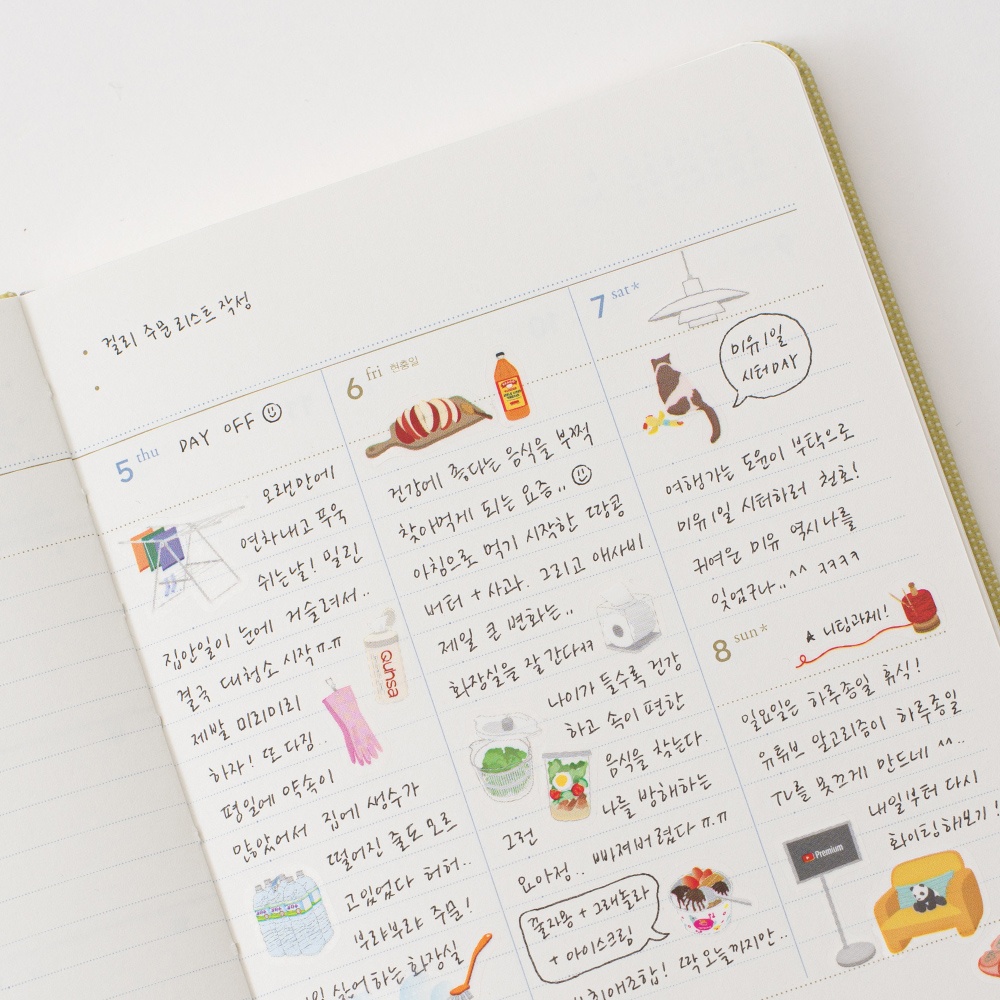 컬리 주문 리스트 작성
5 thu DAY OFF
오랜만에
연차내고 푸욱
쉬는날! 밀린
집안일이 눈에 거슬려서..
결국 대청소 시작 ㅠ.ㅠ
제발 미리미리
하자! 또 다짐..
평일에 약속이
많았어서 집에 생수가
떨어진 줄도 모르
고있었다 허허..
부랴부랴 주문!
싫어하는 화장실
Quhsa
6 fri 현충일
건강에 좋다는 음식을 부쩍
찾아먹게 되는 요즘..
아침으로 먹기 시작한 땅콩
버터 + 사과. 그리고 애사비
제일 큰 변화는..
화장실을 잘 간다ㅋㅋ
나이가 들수록 건강
하고 속이 편한
음식을 찾는다.
나를 방해하는
그런
요아정.. 빠져버렸다 ㅠ.ㅠ
꿀자몽 + 그래놀라
+ 아이스크림
최애조합! 딱 오늘까지만..
7 sat*
미유 1일
시터 DAY
여행가는 도윤이 부탁으로
미유 1일 시터하러 천호!
귀여운 미유 역시 나를
잊었구나..^^ ㅋㅋㅋㅋ
8 sun*
★ 니팅과제!
일요일은 하루종일 휴식!
유튜브 알고리즘이 하루종일
TV를 못끄게 만드네 ^^..
내일부터 다시
화이팅해보기!
Premium